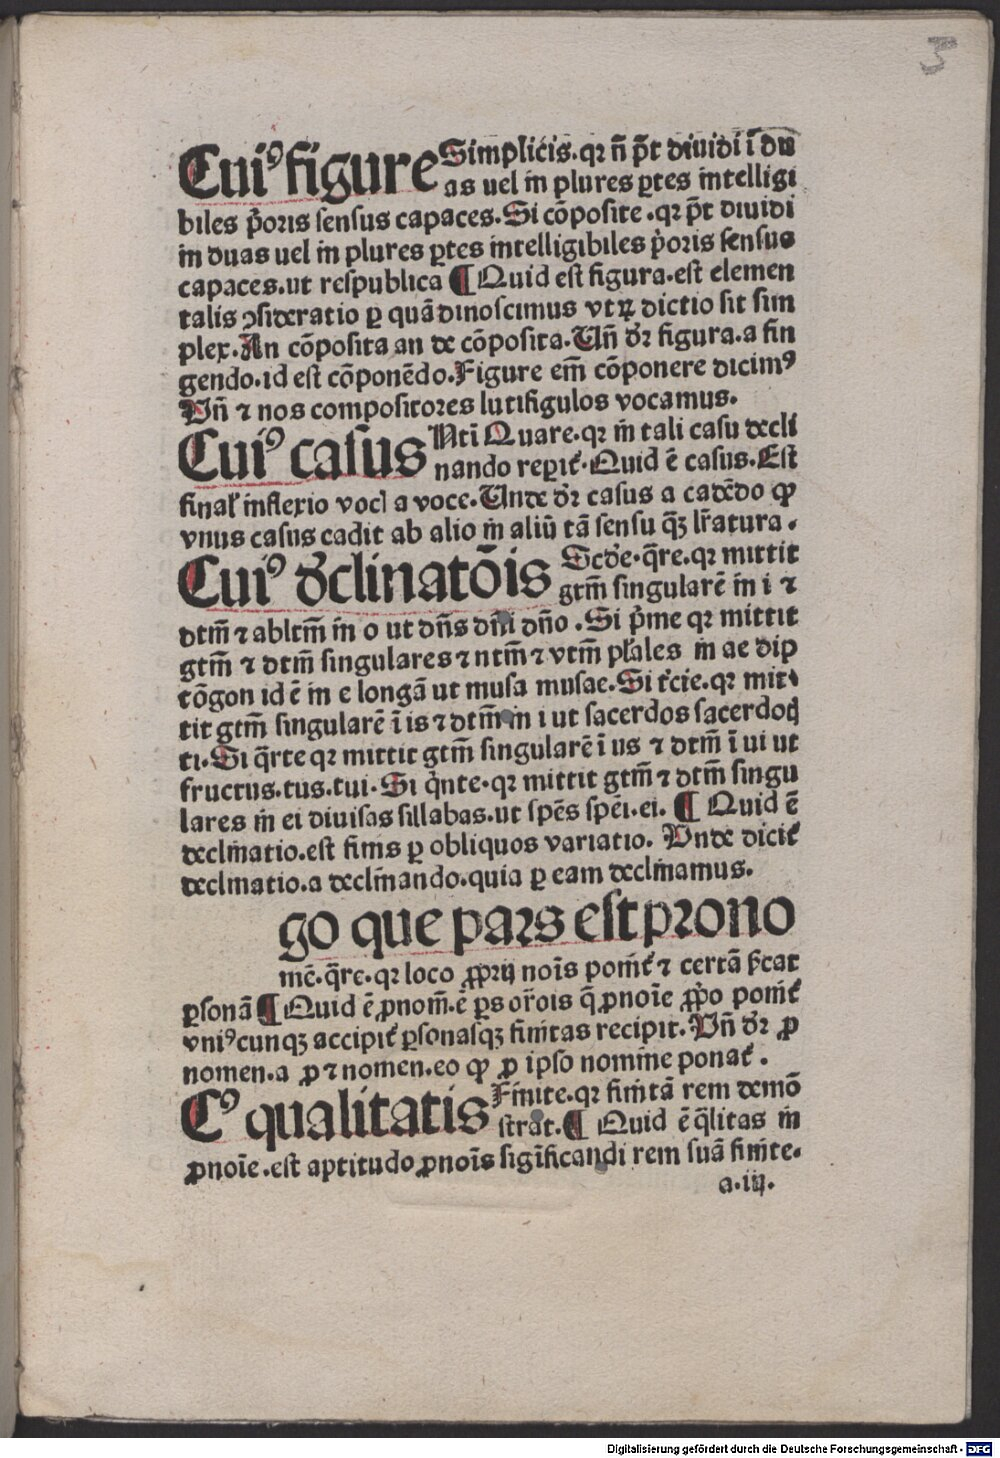 3
Cuiꝰ figure Simplicis. qꝛ ñ pt̃ diuidi ĩ du
as uel in plures ꝑtes intelligi
biles p̃oris sensus capaces. Si cõposite . qꝛ pt̃ diuidi
in duas uel in plures ꝑtes intelligibiles p̃oris sensus
capaces. ut respublica ¶ Quid est figura. est elemen
talis ꝯsideratio ꝑ quã dinoscimus vtꝝ dictio sit sim
plex. An cõposita an de cõposita. Vñ dꝛ̃ figura. a fin
gendo. id est cõponẽdo. Figure em̃ cõponere dicimꝰ
Vñ ⁊ nos compositores lutifigulos vocamus.
Cuiꝰ casus Ntĩ Quare. qꝛ in tali casu decli
nando reperit᷑. Quid ẽ casus. Est
final᷑ inflexio vocl̃ a voce. Unde dꝛ̃ casus a cadẽdo ꝙ
vnus casus cadit ab alio in aliũ tã sensu qꝫ̃ lr̃atura .
Cuiꝰ dc̃linatõis Scde᷑. q̃re. qꝛ mittit
gtm̃ singularẽ in i ⁊
dtm̃ ⁊ abltm̃ in o ut dñs dñi dño . Si p̃me qꝛ mittit
gtm̃ ⁊ dtm̃ singulares ⁊ ntm̃ ⁊ vtm̃ pl᷑ales in ae dip
tõgon id ẽ in e longã ut musa musae. Si t᷑cie. qꝛ mit
tit gtm̃ singularẽ ĩ is ⁊ dtm̃ in i ut sacerdos sacerdoꝗ
ti. Si q̃rte qꝛ mittit gtm̃ singularẽ ĩ us ⁊ dtm̃ ĩ ui ut
fructus. tus. tui. Si q̃nte. qꝛ mittit gtm̃ ⁊ dtm̃ singu
lares in ei diuisas sillabas. ut spẽs spẽi. ei. ¶ Quid ẽ
declinatio. est finis ꝑ obliquos variatio. Vnde dicit᷑
declinatio. a declinando. quia ꝑ eam declinamus.
go que pars est prono
mẽ. q̃re. qꝛ loco ꝓprij noĩs ponit᷑ ⁊ certã s᷑cat
ꝑsonã ¶ Quid ẽ ꝓnom̃. ẽ ꝑs or̃ois q̃ ꝓnoĩe ꝓp̃o ponit᷑
vniꝰcunqꝫ accipit᷑ ꝑsonasqꝫ finitas recipit. Vñ dꝛ̃ ꝓ
nomen. a ꝓ ⁊ nomen. eo ꝙ ꝓ ipso nomine ponat᷑ .
Cꝰ qualitatis Finite. qꝛ finitã rem demõ
strat. ¶ Quid ẽ q̃litas in
ꝓnoĩe. est aptitudo ꝓnoĩs sigĩficandi rem suã finite.
a. iij.
Digitalisierung gefördert durch die Deutsche Forschungsgemeinschaft - DFG